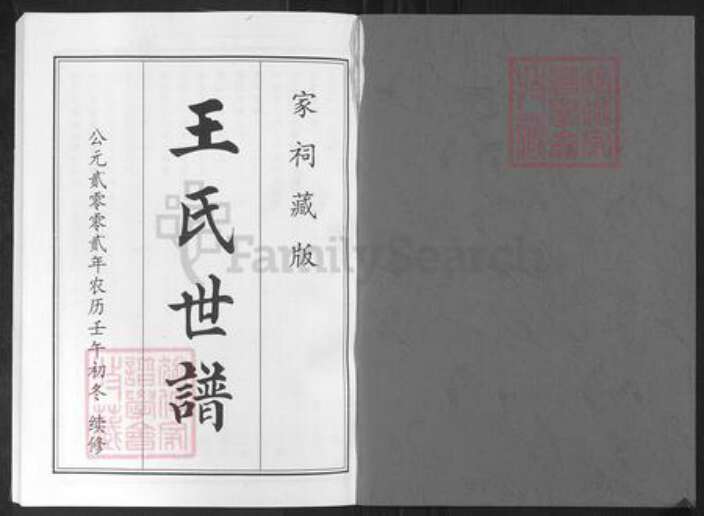 家祠藏版
王氏世譜
公元贰零零贰年农历壬午初冬 续修
FamilySearch